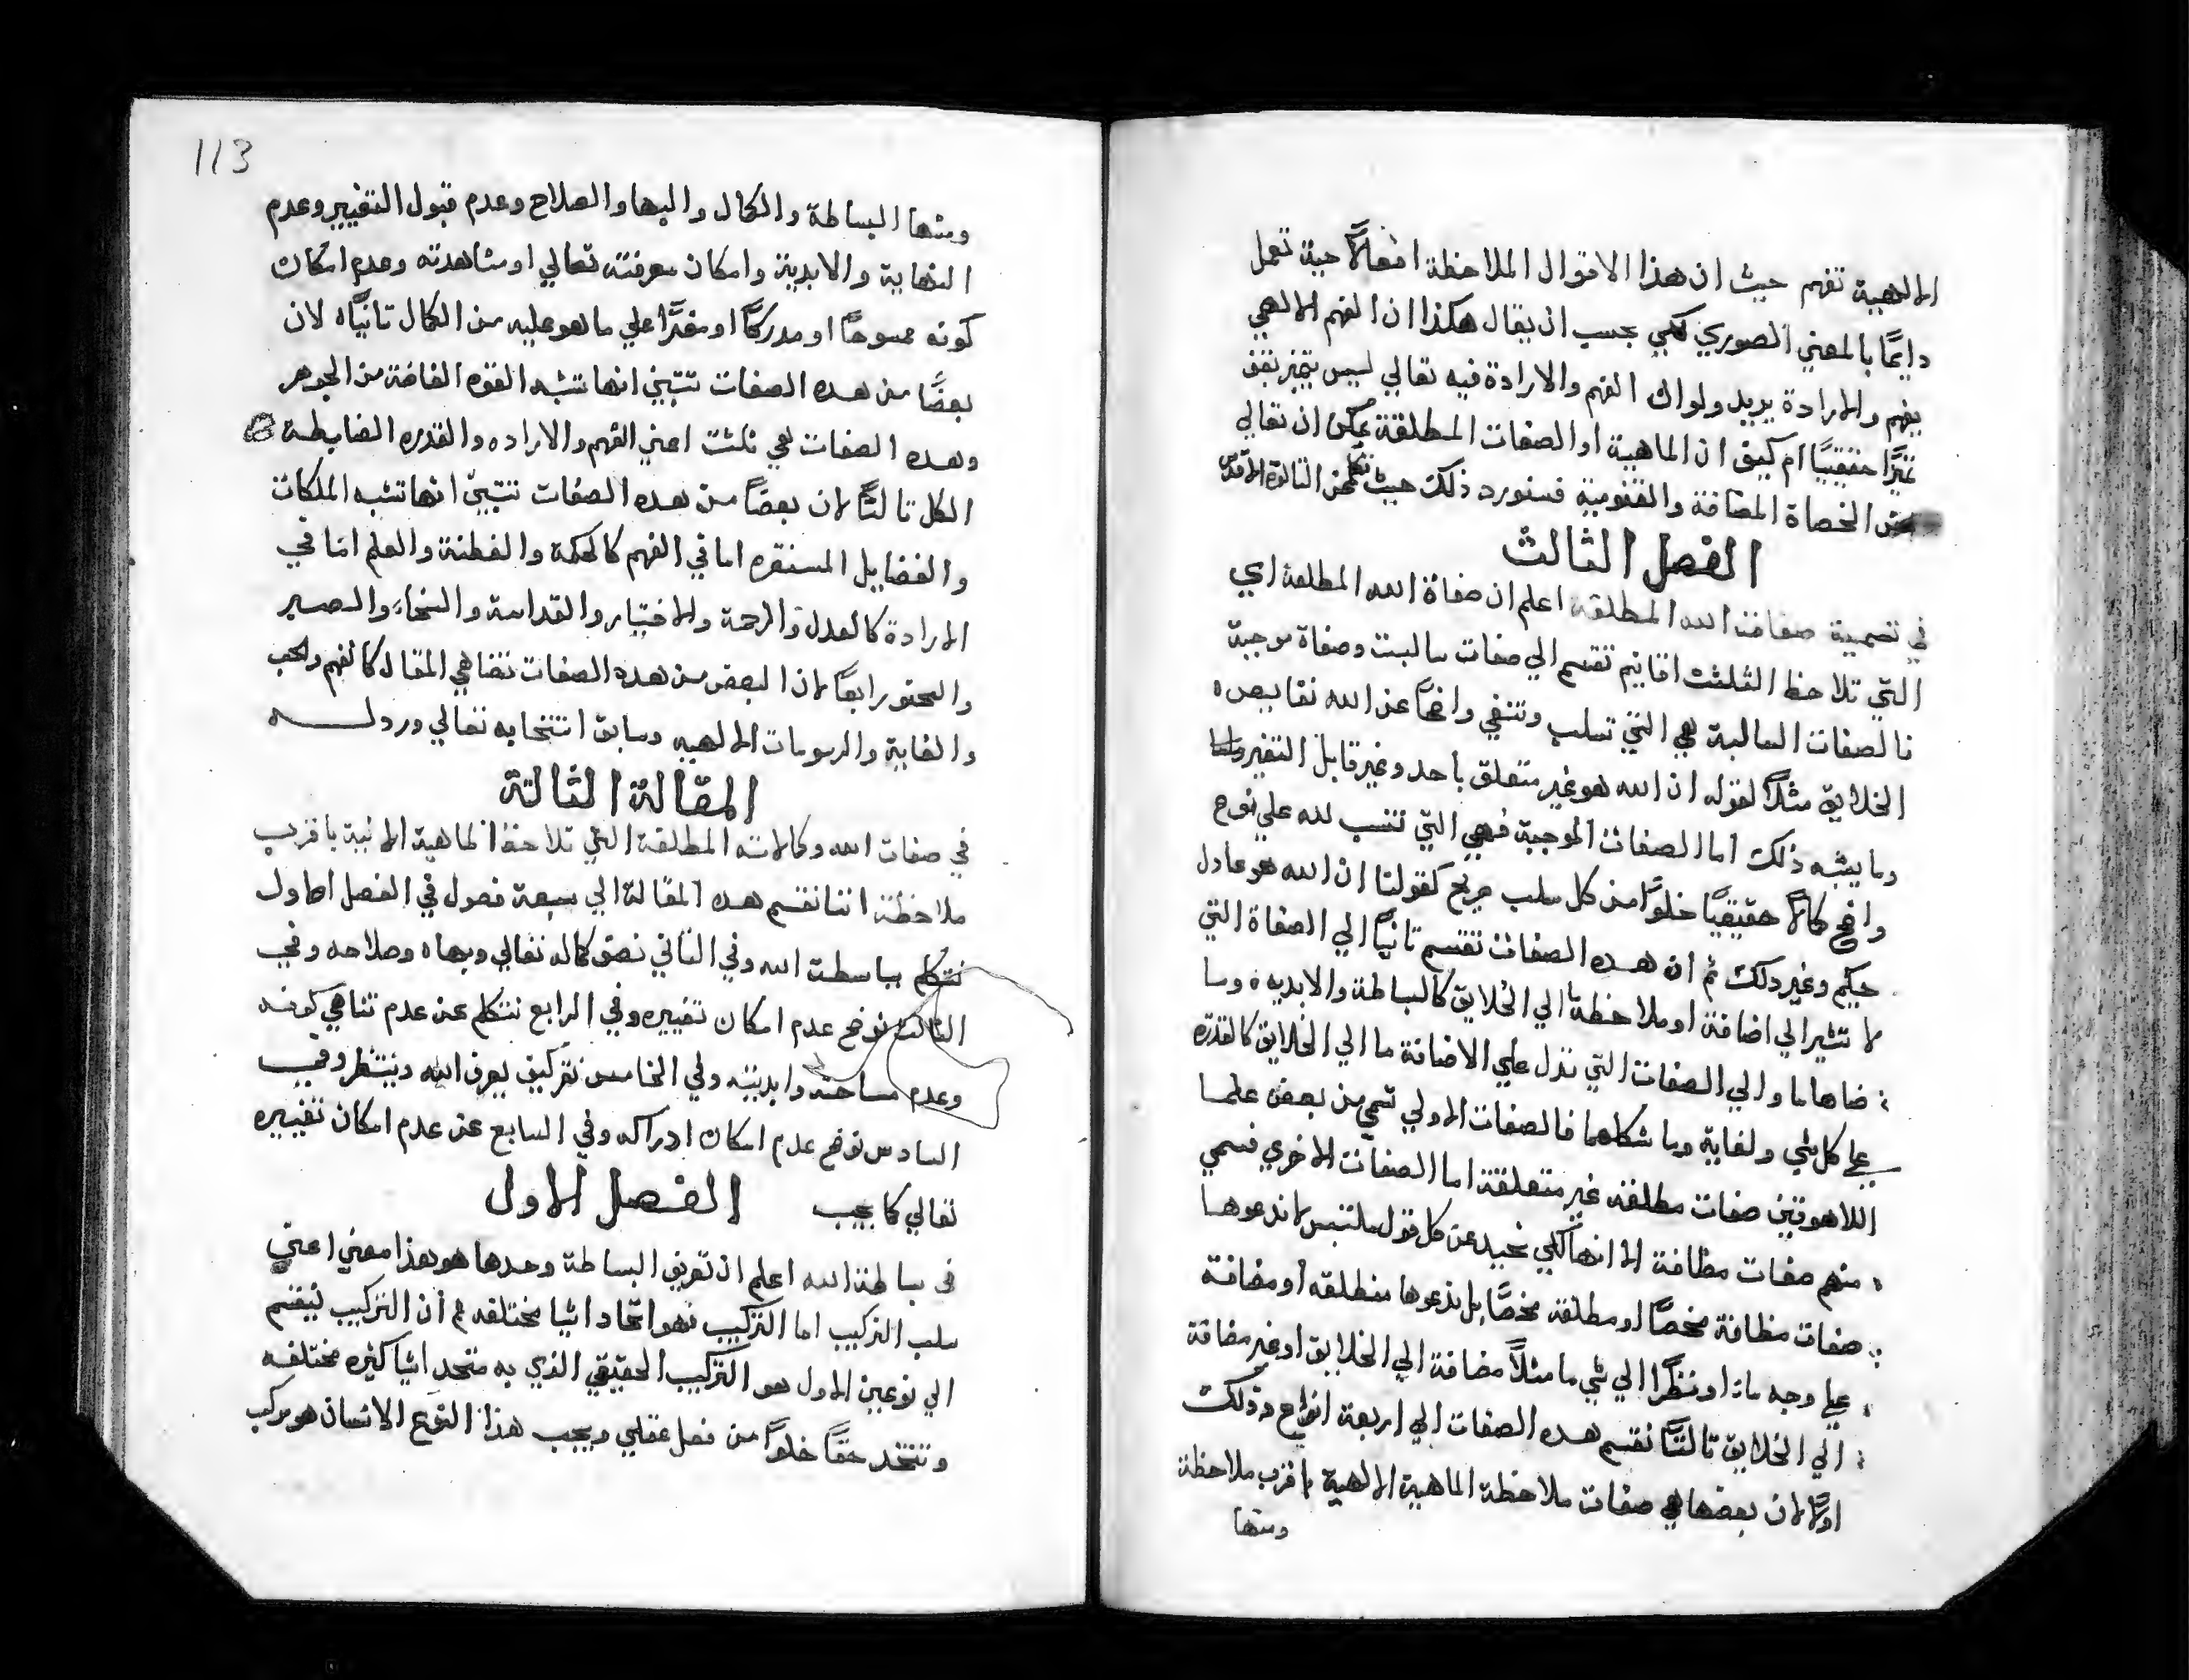 الالهية تفهم حيث ان هذا الاقوال الملاحظة افعالًا حية تعمل
دايمًا بالمعني الصوري لكي يجب ان يقال هكذا ان الفهم الالهي
يفهم والارادة يريد ولواك الفهم والارادة فيه تعالي ليس تميز
تميزًا حقيقيًا ام كيف ان الماهية او الصفات المطلقة يمكن ان تعالي
الخصاة المضافة والقنومية فسنورد ذلك حيث نتكلم عن التالوة الاقدس
الفصل الثالث
في تسمية صفات الله المطلقة اعلم ان صفاة الله المطلقة اي
التي تلاحظ الثلثت اقانيم تقسم الي صفات سالبت وصفاة موجبة
فالصفات السالبة هي التي تسلب وتنفي واضحًا عن الله نقايص
الخلايق مثلًا لقوله ان الله هو غير متعلق باحد وغير قابل التغير
وما يشبه ذلك اما الصفات الموجبة فهي التي تنسب لله علي نوع
واضح كمالا حقيقيًا خلوًا من كل سلب صريح كقولنا ان الله هو عادل
حكيم وغير ذلك ثم ان هذه الصفات تقسم تانيًا الي الصفاة التي
لا تشير الي اضافة او ملاحظة ما الي الخلايق كالبساطة والابديه وما
ضاهاما والي الصفات التي تدل علي الاضافة ما الي الخلايق كالقدره
علي كل شي والغاية وما شكلهما فالصفات الاولي تسمي من بعض علما
اللاهوتيين صفات مطلقة غير متعلقة اما الصفات الاخري فسمي
منهم صفات مظافة الا انها لكي نحيد عن كل قول ملتبس لا ندعوها
صفات مظافة محضًا او مطلقة محضًا بل ندعوها منطلقه او مضافة
علي وجه ما او نظرًا الي شي ما مثلًا مضافة الي الخلايق او غير مضافة
الي الخلايق تالتًا نقسم هذه الصفات الي اربعة انواع وذلك
اولًا لان بعضها هي صفات ملاحظة الماهية الالهية باقرب ملاحظة
ومنها
113
ومنها البساطة والكمال والبها والصلاح وعدم قبول التغيير وعدم
النهاية والابدية وامكان معرفته تعالي او مشاهدته وعدم امكان
كونه ممسوحًا او مدركًا او مخبرًا علي ما هو عليه من الكمال تانيًا لان
بعضًا من هذه الصفات تتبين انها تشبه القوه الفاضة من الجوهر
وهذه الصفات هي ثلثت اعني الفهم والاراده والقدره الضابطة
الكل تالتًا لان بعضًا من هذه الصفات تتبين انها تشبه الملكات
والفضايل المستقره اما في الفهم كالحكمة والفطنة والعلم اما في
الارادة كالعدل والرحمة والاختيار والقداسة والسخاء والصبر
والحنو رابعًا لان البعض من هذه الصفات تضاهي المقال كالفهم والحب
والغاية والرسومات الالهيه وسابق انتخابه تعالي ورد له
المقالة الثالثة
في صفات الله وكمالاته المطلقة التي تلاحظ الماهية الانية باقرب
ملاحظة اننا نقسم هذه المقالة الي سبعة فصول في الفصل الاول
نتكلم بباسطة الله وفي التاني نصف كماله تعالي وبهاه وصلاحه وفي
التالت نوضح عدم امكان تغييره وفي الرابع نتكلم عن عدم تناهي كونه
وعدم مساحته وابديته وفي الخامس نقر كيف يعرف الله وينتظر وفي
السادس نوضح عدم امكان ادراكه وفي السابع عن عدم امكان تغييره
تعالي كما يجب الفصل الاول
في بساطة الله اعلم ان تعريف البساطة وحدها هو هذا معني اعني
سلب التركيب اما التركيب فهو اتحاد اشيا مختلفه ثم ان التركيب ينقسم
الي نوعين الاول هو التركيب الحقيقي الذي به متحد اشيا كثيره مختلفه
وتتخد حقًا خلوًا من فعل عقلي ويجب هذا النوع الانسان هو مركب